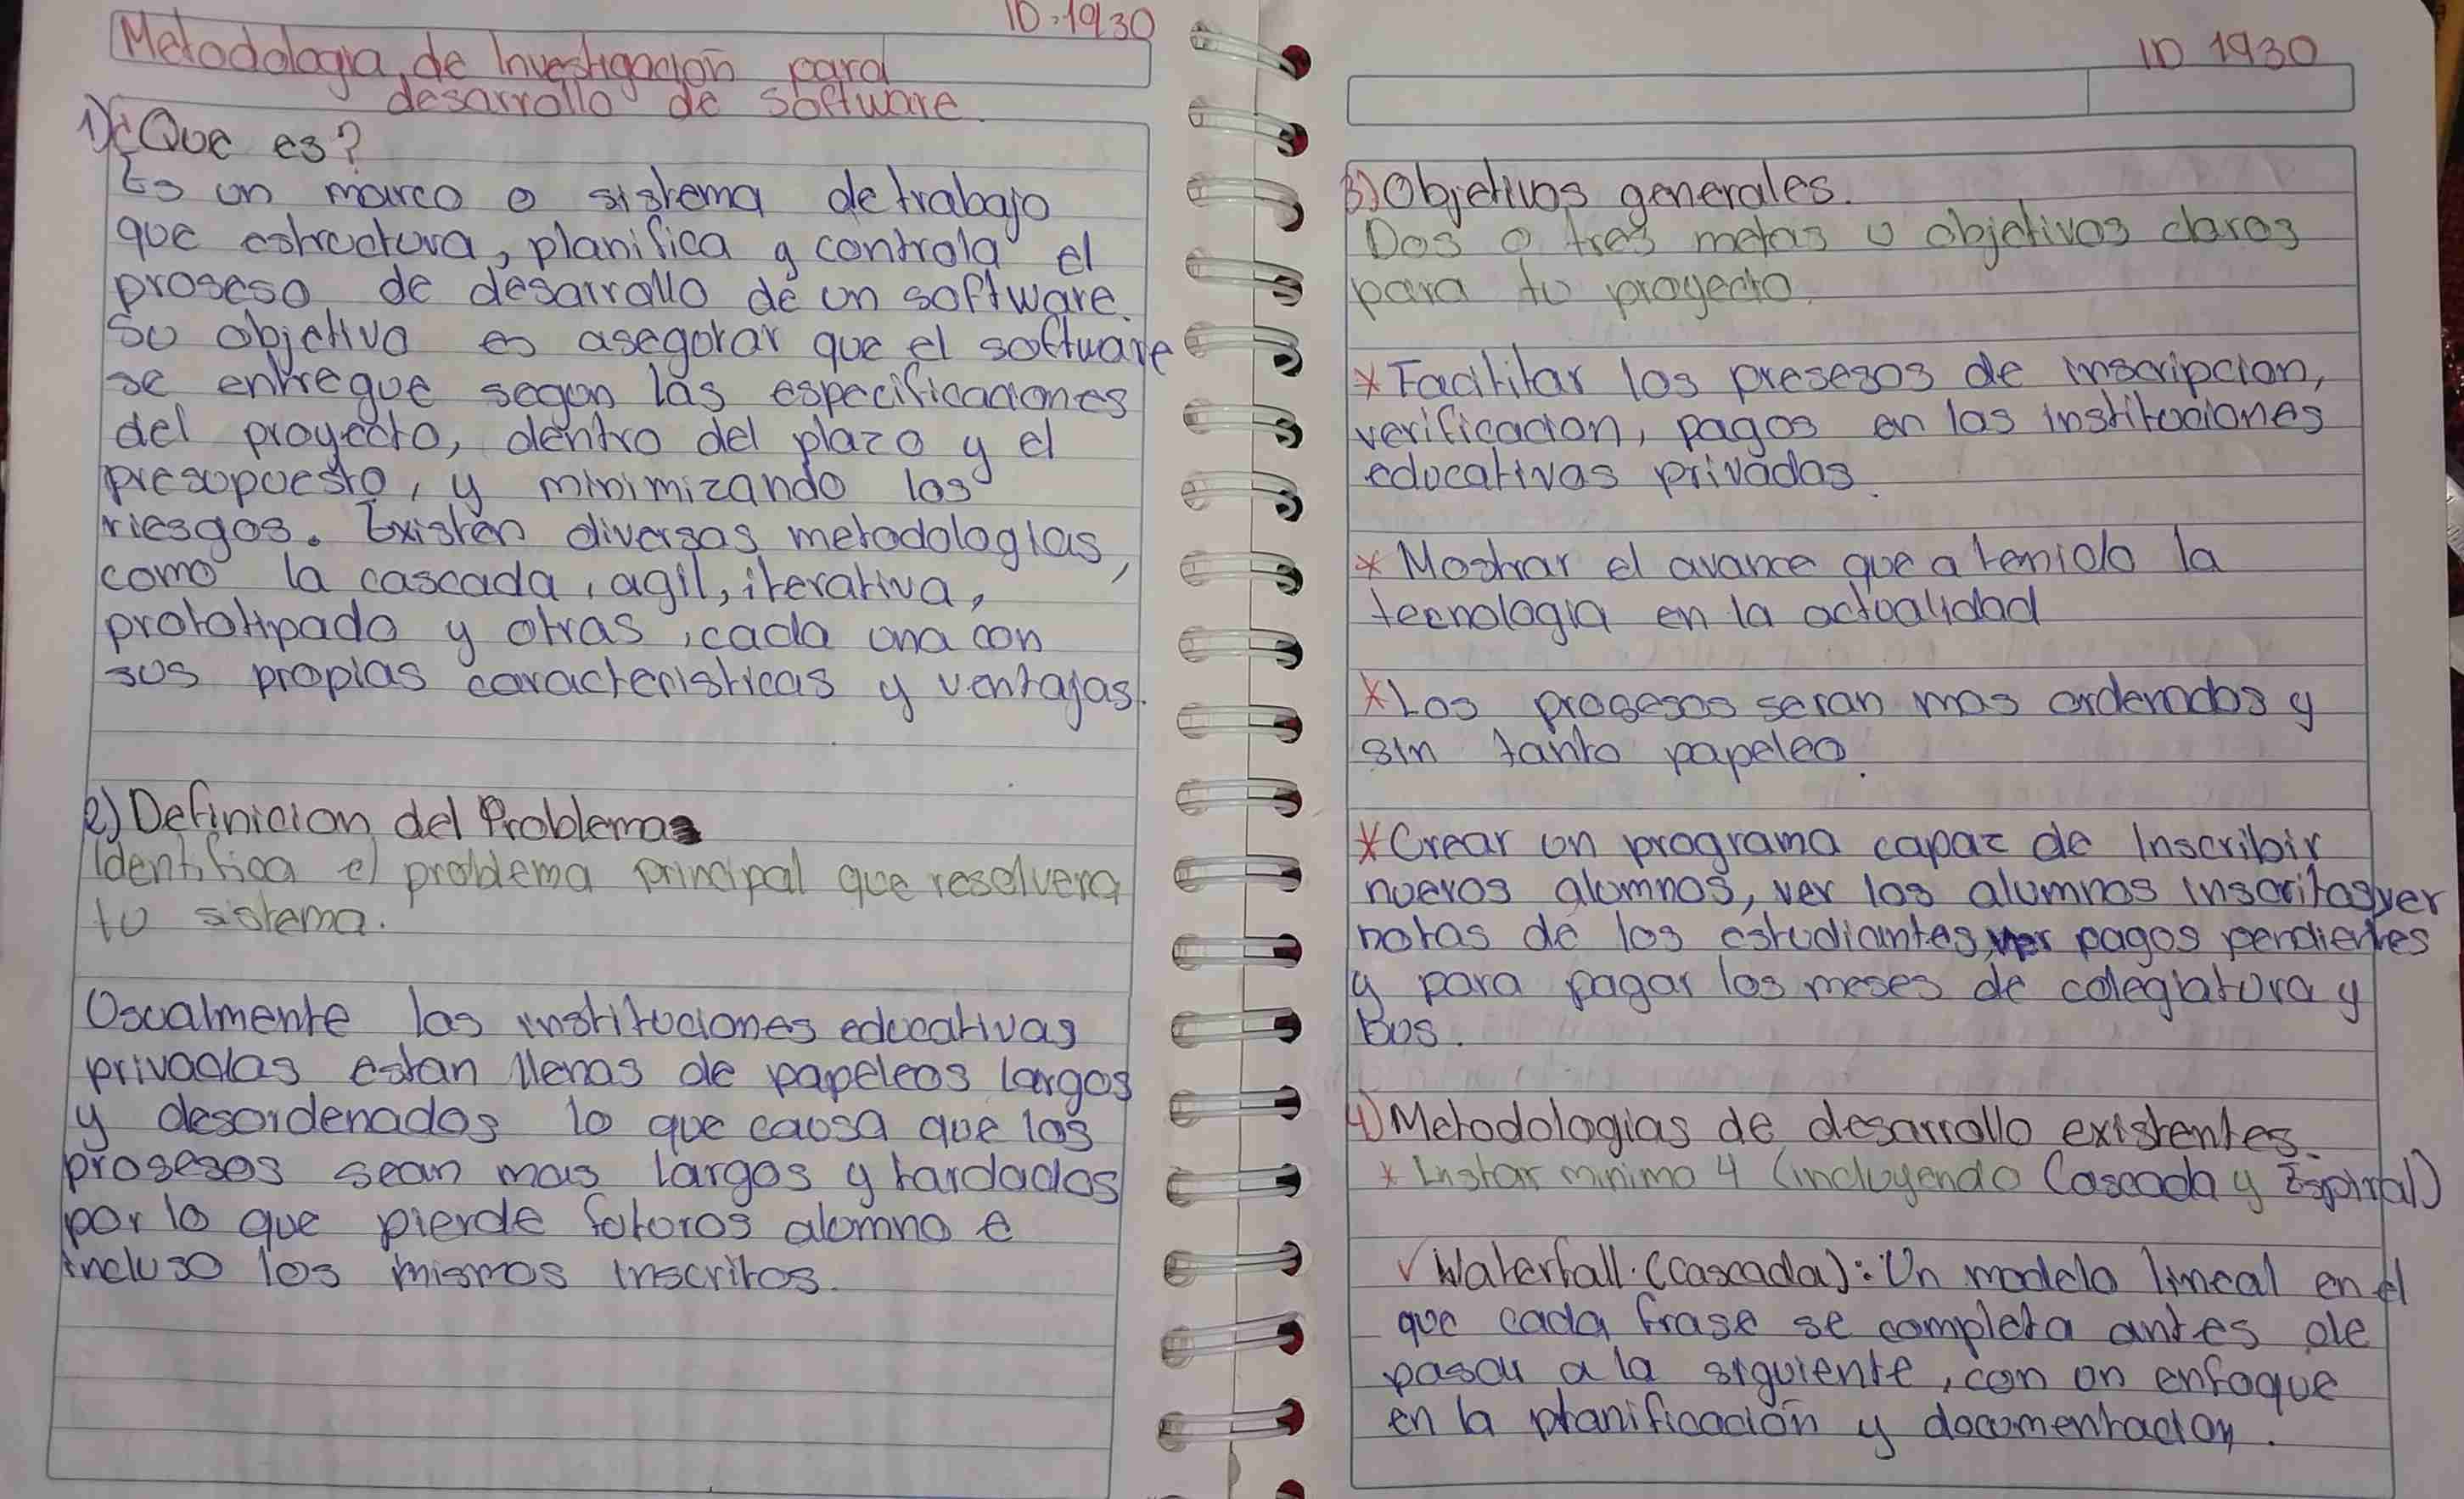 ID:1930
Metodologia de Investigación para
desarrollo de software.
1)¿Que es?
Es un marco o sistema de trabajo
que estructura, planifica y controla el
proseso de desarrollo de un software.
Su objetivo es asegurar que el software
se entregue segun las especificaciones
del proyecto, dentro del plazo y el
presupuesto, y minimizando los
riesgos. Existen diversas metodologias,
como la cascada, agil, iterativa,
prototipado y otras, cada una con
sus propias caracteristicas y ventajas.
2) Definicion del Problema
Identifica el problema principal que resolvera
tu sistema.
Usualmente las instituciones educativas
privadas estan llenas de papeleos largos
y desordenados lo que causa que los
prosesos sean mas largos y tardados
por lo que pierde futuros alumno e
incluso los mismos inscritos.
ID 1930
3) Objetivos generales.
Dos o tres metas u objetivos claros
para tu proyecto.
* Facilitar los presesos de inscripcion,
verificacion, pagos en las instituciones
educativas privadas.
* Mostrar el avance que a tenido la
tecnologia en la actualidad
* Los prosesos seran mas ordenados y
sin tanto papeleo.
* Crear un programa capaz de Inscribir
nuevos alumnos, ver los alumnos inscritos, ver
notas de los estudiantes, ver pagos pendientes
y para pagar los meses de colegiatura y
Bus.
4) Metodologias de desarrollo existentes.
* Listar minimo 4 (incluyendo Cascada y Espiral)
✓ Waterfall. (Cascada): Un modelo lineal en el
que cada frase se completa antes de
pasar a la siguiente, con un enfoque
en la planificación y documentacion.